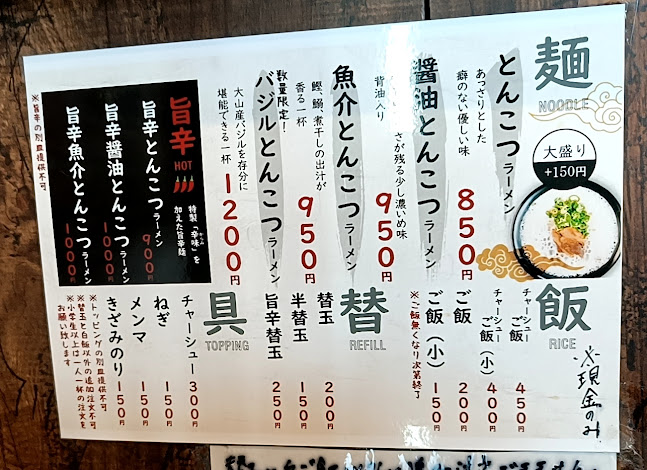 麺
NOODLE
大盛り
+150円
とんこつラーメン
あっさりとした
癖のない優しい味
850円
醤油とんこつラーメン
さが残る少し濃いめ味
背油入り
950円
魚介とんこつラーメン
鰹、鯵、煮干しの出汁が
香る一杯
950円
数量限定!
バジルとんこつラーメン
大山産バジルを存分に
堪能できる一杯
1200円
旨辛
HOT
特製「辛味」を
加えた旨辛麺
旨辛とんこつラーメン
900円
旨辛醤油とんこつラーメン
1000円
旨辛魚介とんこつラーメン
1000円
※旨辛の別皿提供不可
飯
RICE
チャーシューご飯
450円
チャーシューご飯(小)
400円
ご飯
200円
ご飯(小)
150円
※ご飯無くなり次第終了
※現金のみ
替
REFILL
替玉
200円
半替玉
150円
旨辛替玉
250円
具
TOPPING
チャーシュー
300円
ねぎ
150円
メンマ
150円
きざみのり
150円
※トッピングの別皿提供不可
※替玉と白飯以外の追加注文不可
※小学生以上は一人一杯の注文を
お願い致します